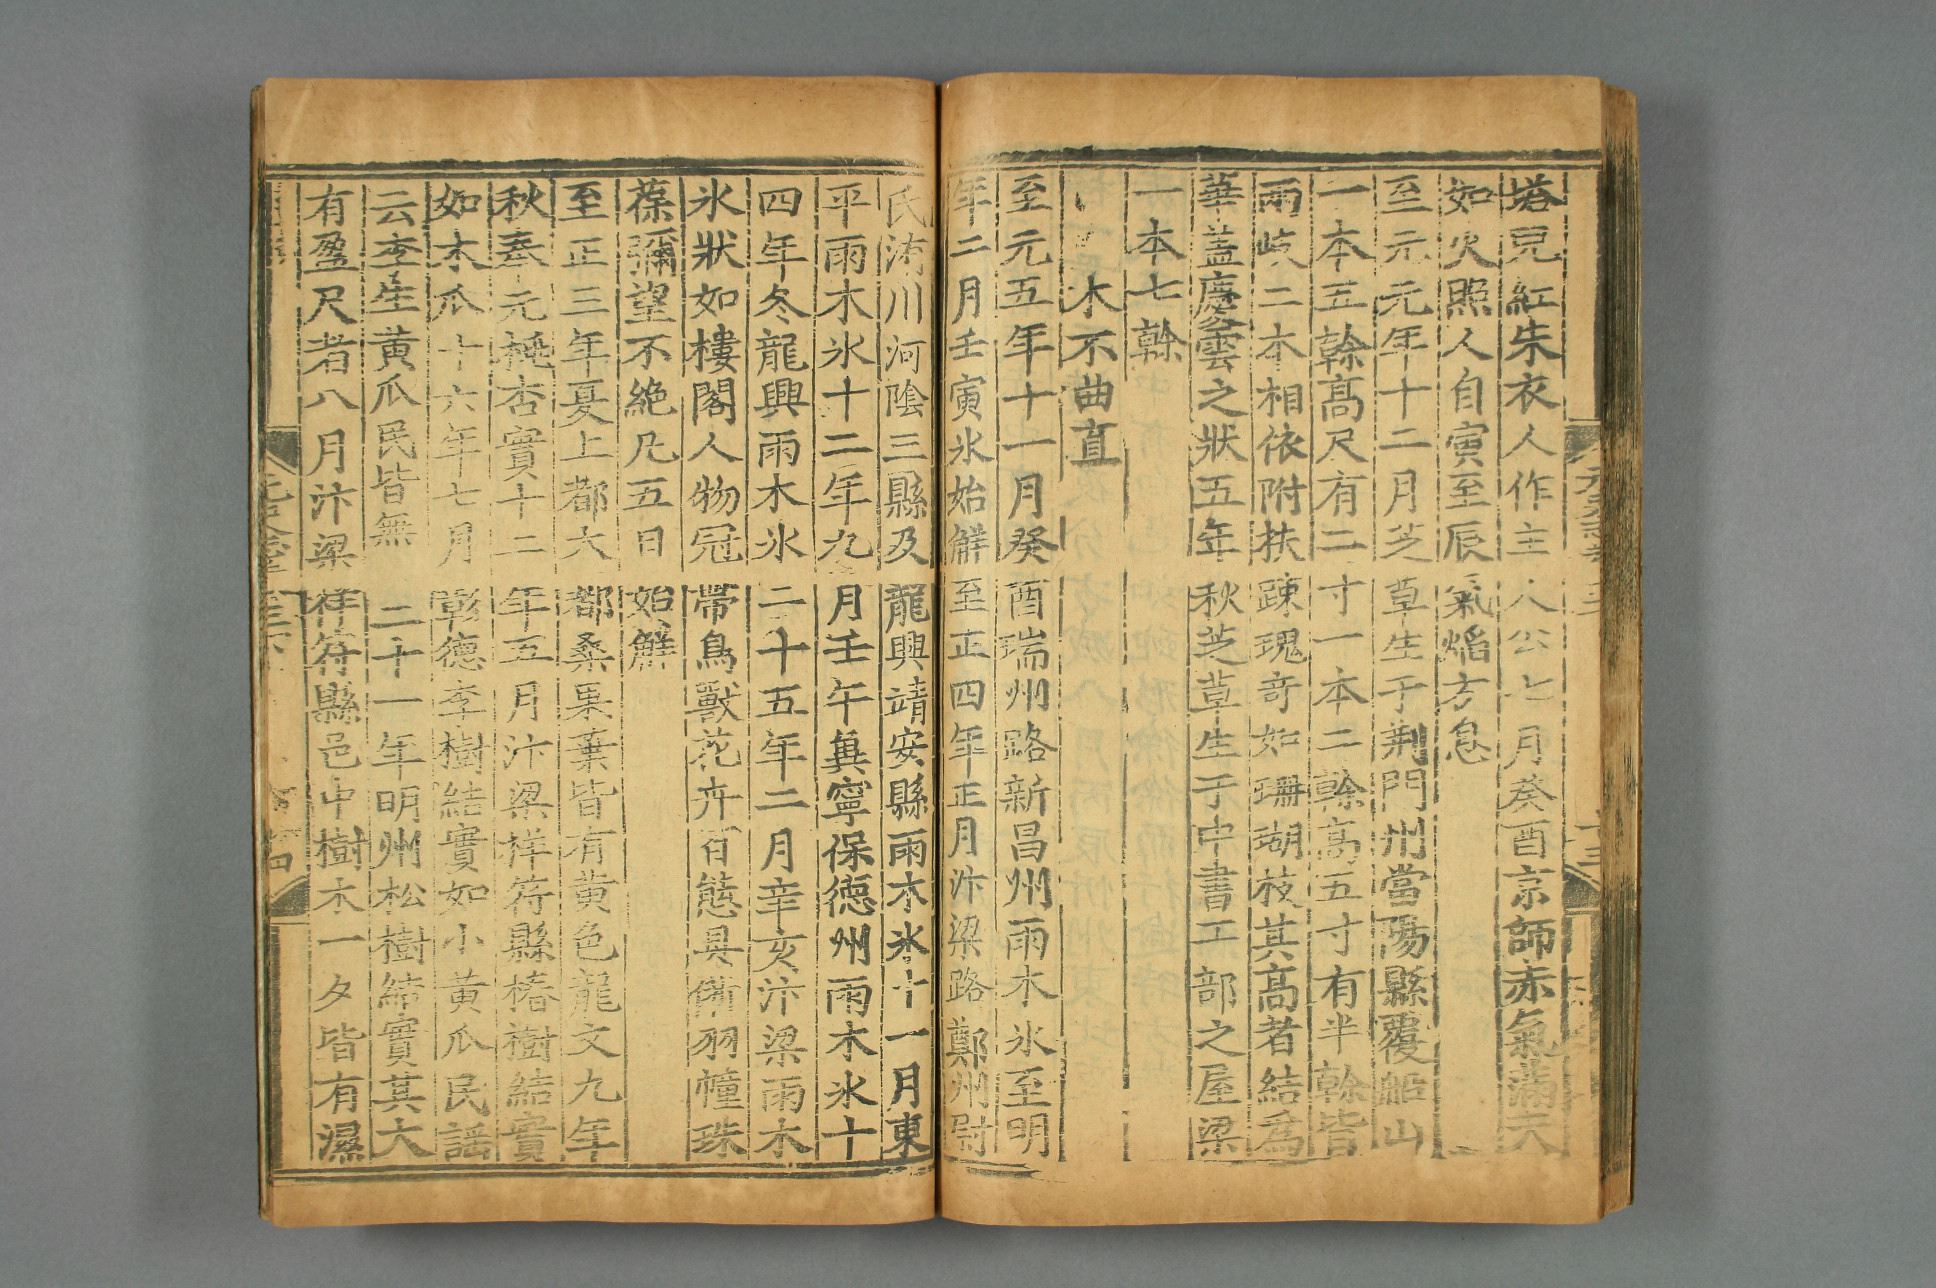 塔兒紅朱衣人作主人公七月癸酉京師赤氣滿天
如火照人自寅至辰氣焰方息
至元元年十二月芝草生于荆門州當陽縣覆船山
一本五幹高尺有二寸一本二幹高五寸有半幹皆
兩岐二本相依附扶疎瑰奇如珊瑚枝其高者結爲
華蓋慶雲之狀五年秋芝草生于中書工部之屋梁
一本七幹
木不曲直
至元五年十一月癸酉瑞州路新昌州雨木氷至明
年二月壬寅氷始解至正四年正月汴梁路鄭州尉
氏洧川河陰三縣及龍興靖安縣雨木氷十一月東
平雨木氷十二年九月壬午冀寧保德州雨木氷十
四年冬龍興雨木氷二十五年二月辛亥汴梁雨木
氷狀如樓閣人物冠帶鳥獸花卉百態具備羽幢珠
葆彌望不絶凡五日始解
至正三年夏上都大都桑果葉皆有黄色龍文九年
秋奉元桃杏實十二年五月汴梁祥符縣椿樹結實
如木瓜十六年七月彰德李樹結實如小黄瓜民謡
云李生黄瓜民皆無二十一年明州松樹結實其大
有盈尺者八月汴梁祥符縣邑中樹木一夕皆有濕